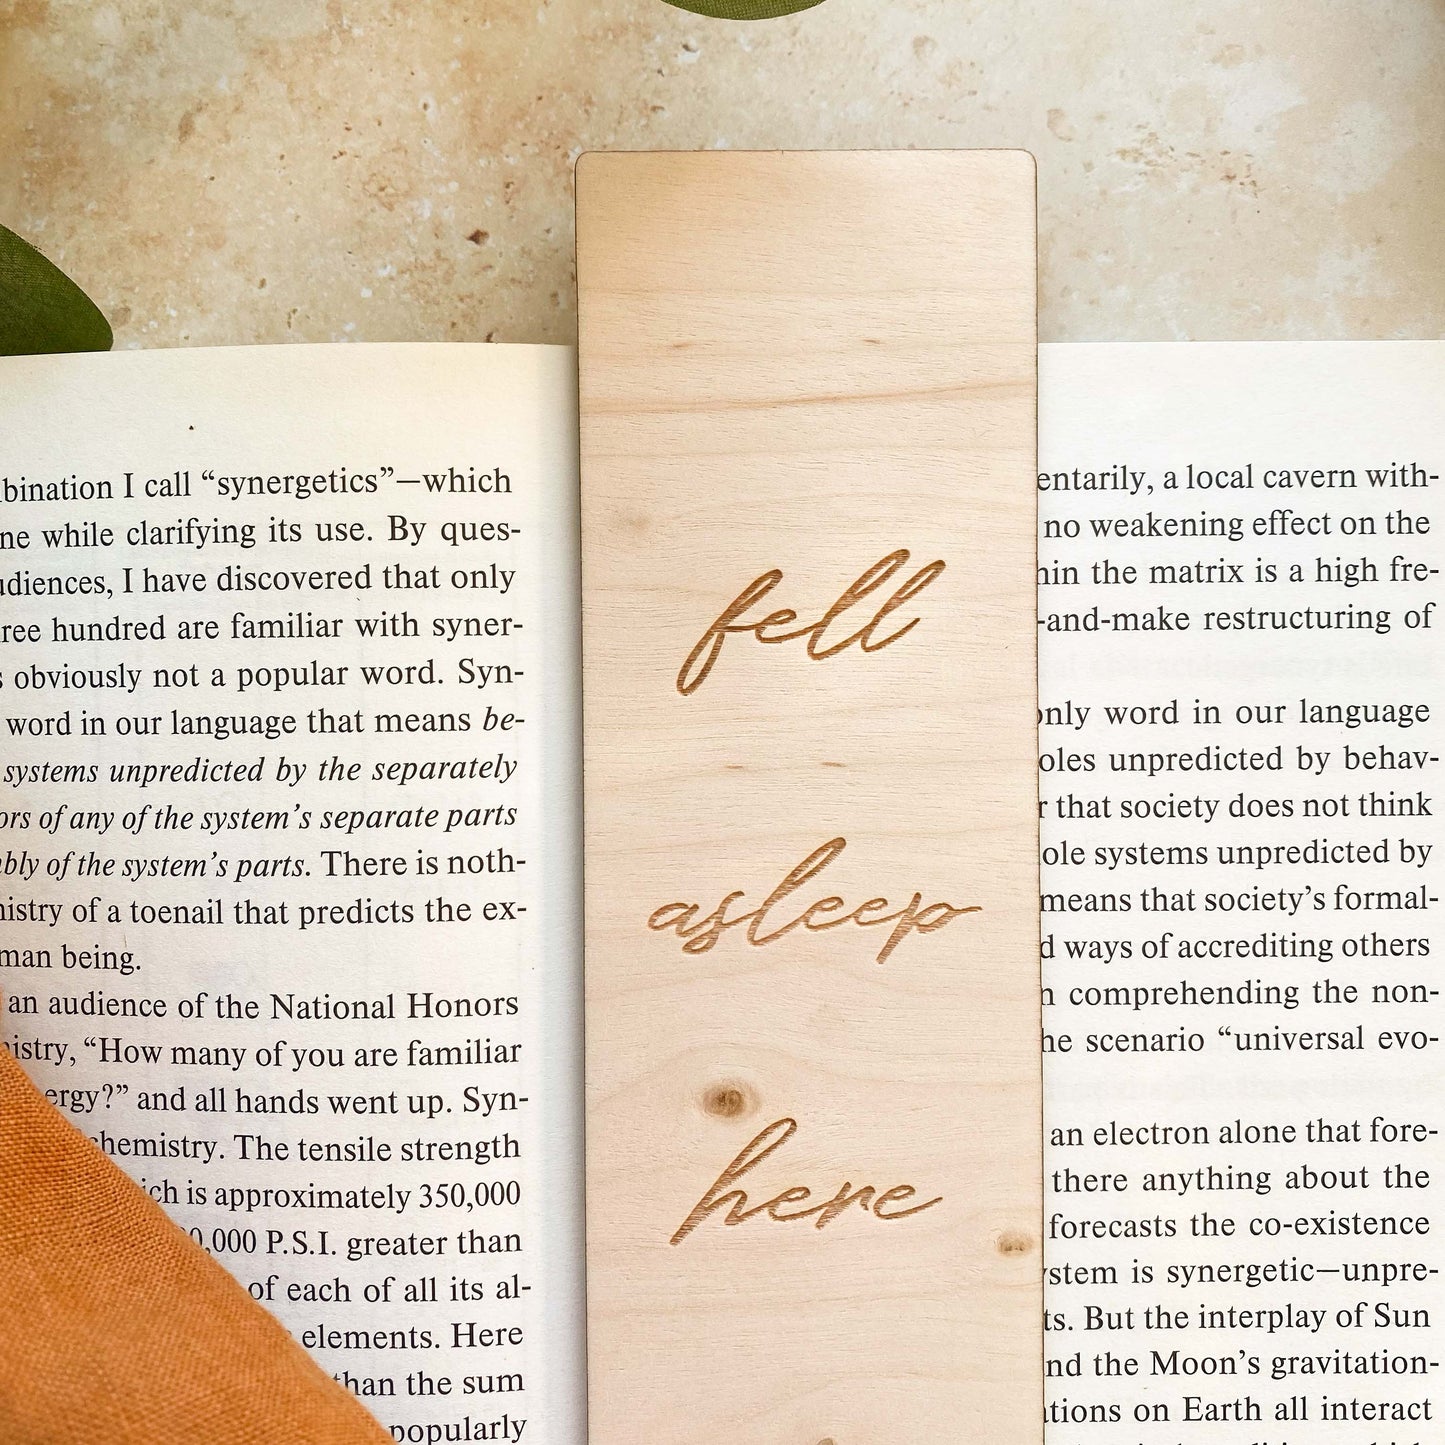 bination I call “synergetics”—which
ne while clarifying its use. By ques-
udiences, I have discovered that only
ree hundred are familiar with syner-
s obviously not a popular word. Syn-
word in our language that means be-
systems unpredicted by the separately
ors of any of the system’s separate parts
bly of the system’s parts. There is noth-
nistry of a toenail that predicts the ex-
man being.
an audience of the National Honors
nistry, “How many of you are familiar
ergy?” and all hands went up. Syn-
chemistry. The tensile strength
ich is approximately 350,000
0,000 P.S.I. greater than
of each of all its al-
elements. Here
than the sum
popularly
fell
asleep
here
entarily, a local cavern with-
no weakening effect on the
hin the matrix is a high fre-
-and-make restructuring of
only word in our language
oles unpredicted by behav-
r that society does not think
ole systems unpredicted by
means that society’s formal-
d ways of accrediting others
n comprehending the non-
he scenario “universal evo-
an electron alone that fore-
there anything about the
forecasts the co-existence
ystem is synergetic—unpre-
ts. But the interplay of Sun
nd the Moon’s gravitation-
ations on Earth all interact